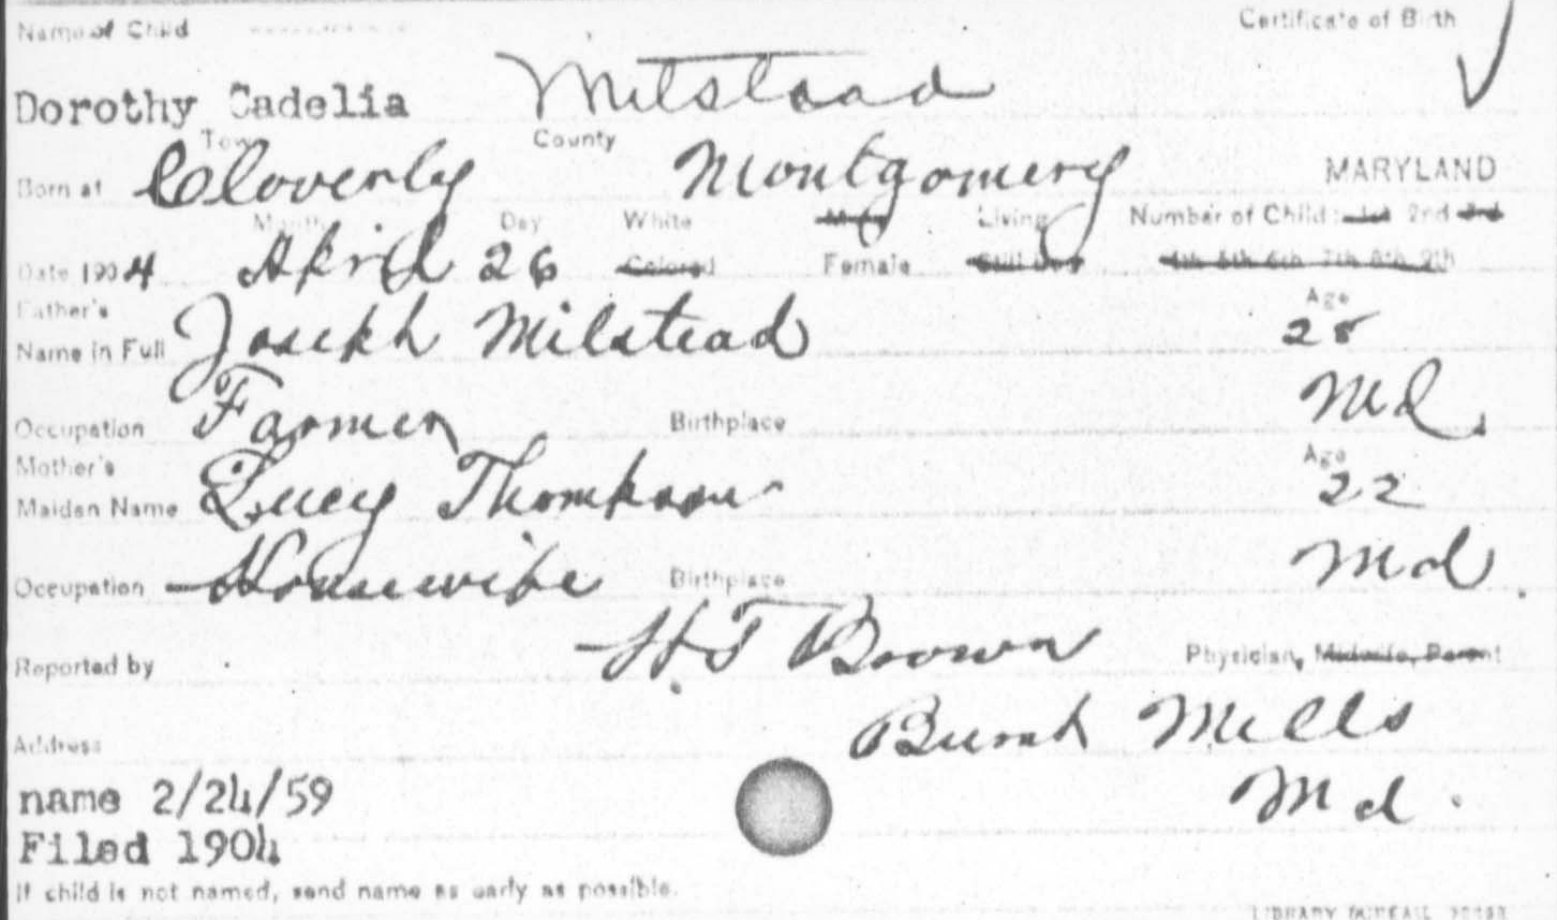 Name of Child Certificate of Birth
Dorothy Cadelia Milstead
Town County
Born at Cloverly Montgomery MARYLAND
Month Day White Male Living Number of Child: 1st 2nd 3rd
Date 1904 April 26 Colored Female Still Born 4th 5th 6th 7th 8th 9th
Father's Age
Name in Full Joseph Milstead 28
Occupation Farmer Birthplace Md.
Mother's Age
Maiden Name Lucy Thompson 22
Occupation Housewife Birthplace Md.
Reported by H.T Brown Physician, Midwife, Parent
Address Burnt Mills
name 2/24/59 Md.
Filed 1904
If child is not named, send name as early as possible.
LIBRARY BUREAU